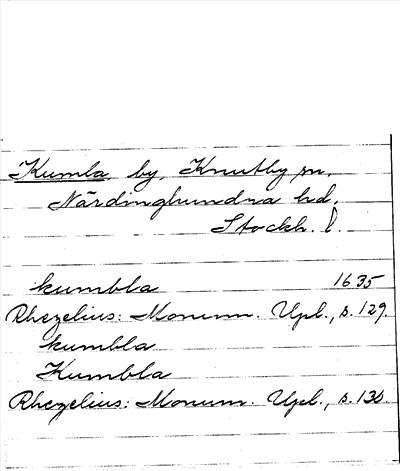 Kumla, by, Knutby sn.
Närdinghundra hd.
Stockh. l.
kumbla 1635
Rhezelius: Monum. Upl., s. 129.
kumbla
Kumbla
Rhezelius: Monum. Upl., s. 130.